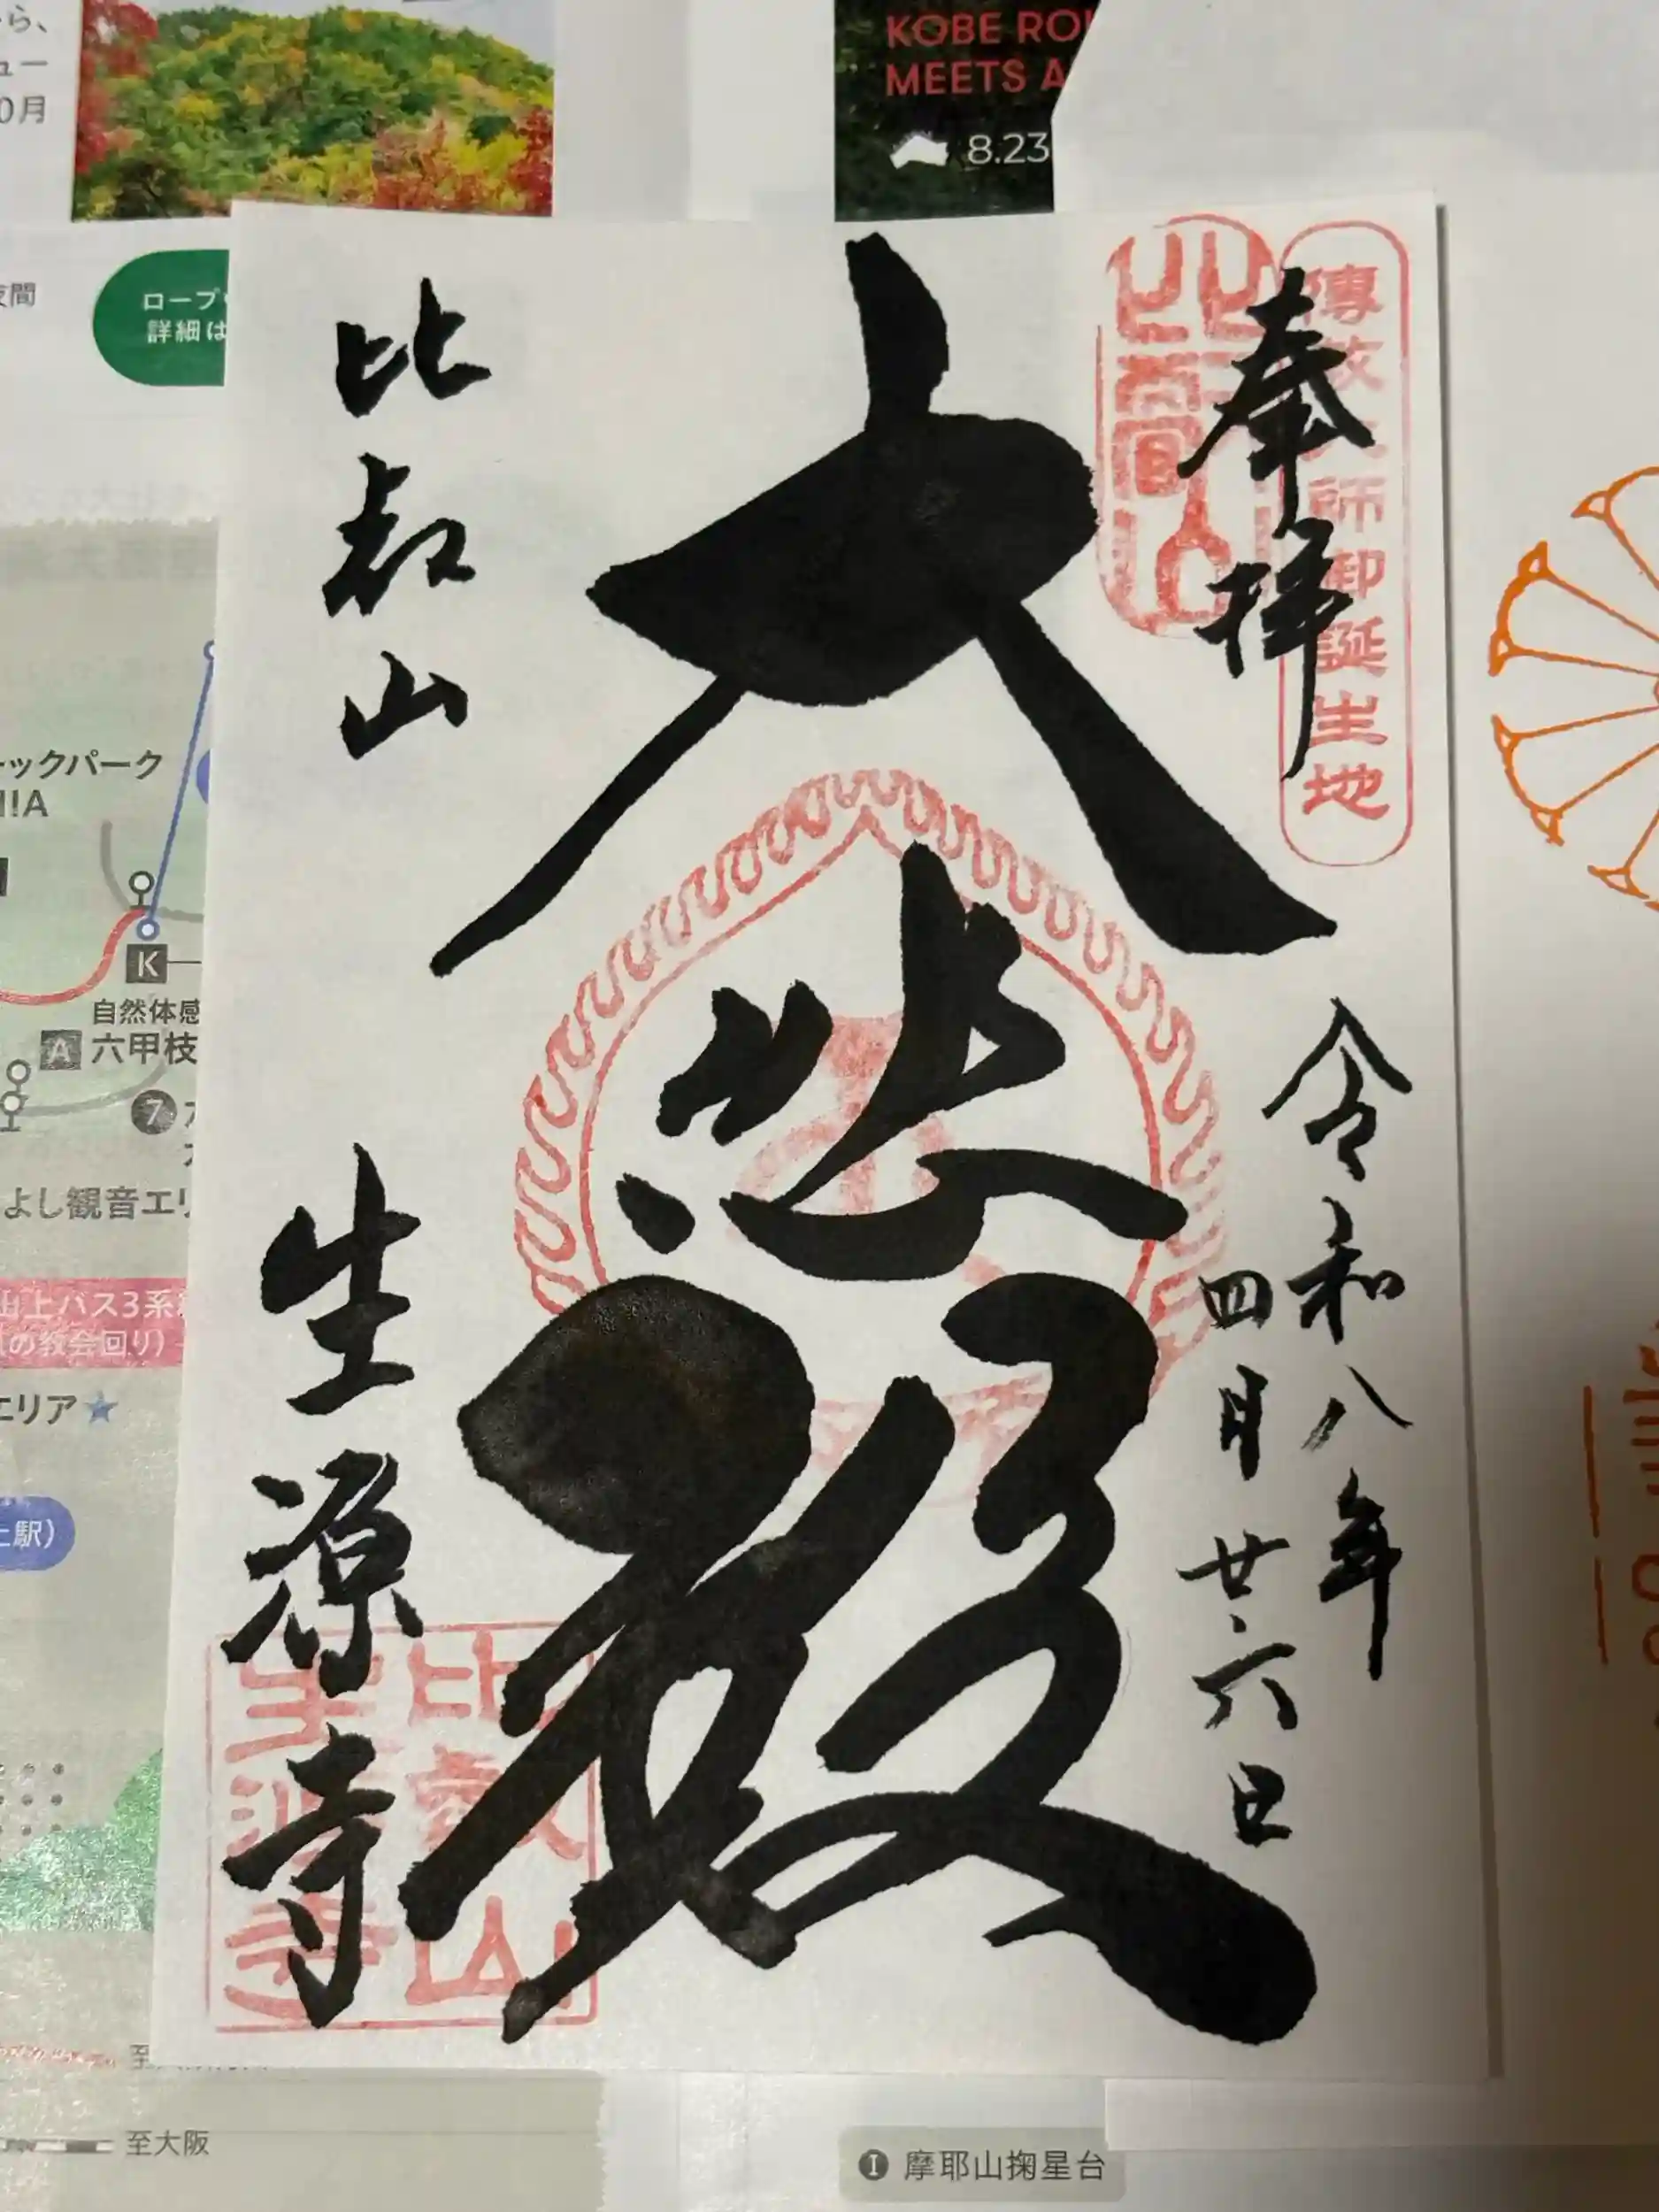 ら、
ュー
0月
KOBE RO
MEETS A
8.23
夜間
ロープ
詳細は
奉拝
傳教大師御誕生地
令和八年
四月廿六日
大悲殿
比叡山
生源寺
比叡山
生源寺
ックパーク
!A
K
自然体感
A 六甲枝
7
よし観音エリ
山上バス3系
の教会回り)
エリア★
上駅)
至
至大阪
I 摩耶山掬星台